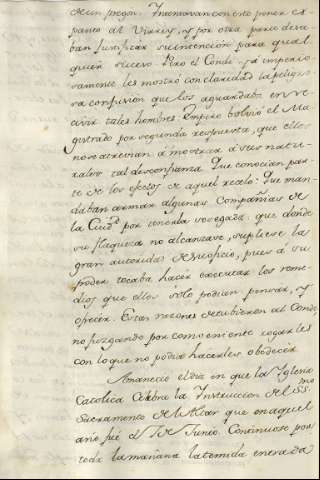 de un pregon. Intentavan con esto poner es
panto al Virrey, y por otra parte desea
ban justificar su intención para qual
quier suceso. Pero el Conde ya imperio
samente les mostró con claridad la peligro
sa confusion que los aguardaba en re
civir tales hombres. Empero bolvió el Ma
gistrado por segunda respuesta, que ellos
no se atrevian á mostrar á sus natu
rales tal desconfianza. Que conocian par
te de los efectos de aquel recelo: Que man
daban armar algunas Compañias de
la Ciud.^d por tenerla sosegada: que donde
su flaqueza no alcanzase, supliese la
gran autoridad de su oficio, pues á su
poder tocaba hacer executar los reme
dios que ellos sólo podian pensar, y
ofrecer. Estas razones detubieron al Conde,
no juzgando por conveniente rogarles
con lo que no podia hacerles obedecer.
Amaneció el dia en que la Iglesia
Catolica celebra la Institucion del SS.^mo
Sacramento del Altar que en aquel
año fué de Junio. Continuose por
toda la mañana la temida entrada